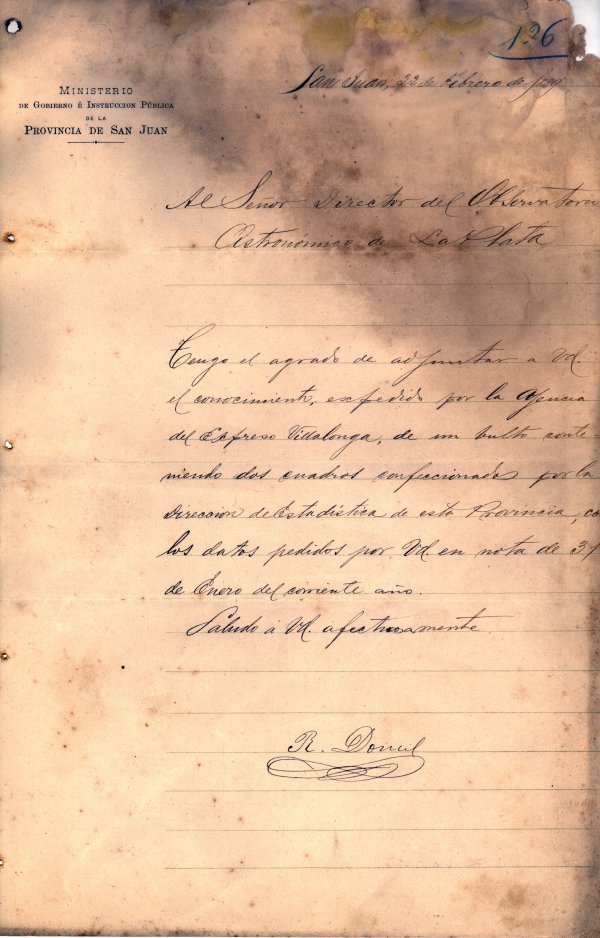 126
San Juan, 22 de Febrero de
MINISTERIO
DE GOBIERNO É INSTRUCCION PÚBLICA
DE LA
PROVINCIA DE SAN JUAN
Al Señor Director del Observatorio
Astronómico de La Plata
Tengo el agrado de adjuntar a Vd.
el conocimiento, expedido por la Agencia
del Expreso Villalonga, de un bulto conte-
niendo dos cuadros confeccionados por la
Direccion de Estadística de esta Provincia, co
los datos pedidos por Vd. en nota de 31
de Enero del corriente año.
Saludo á Vd. afectuosamente
R. Doncel